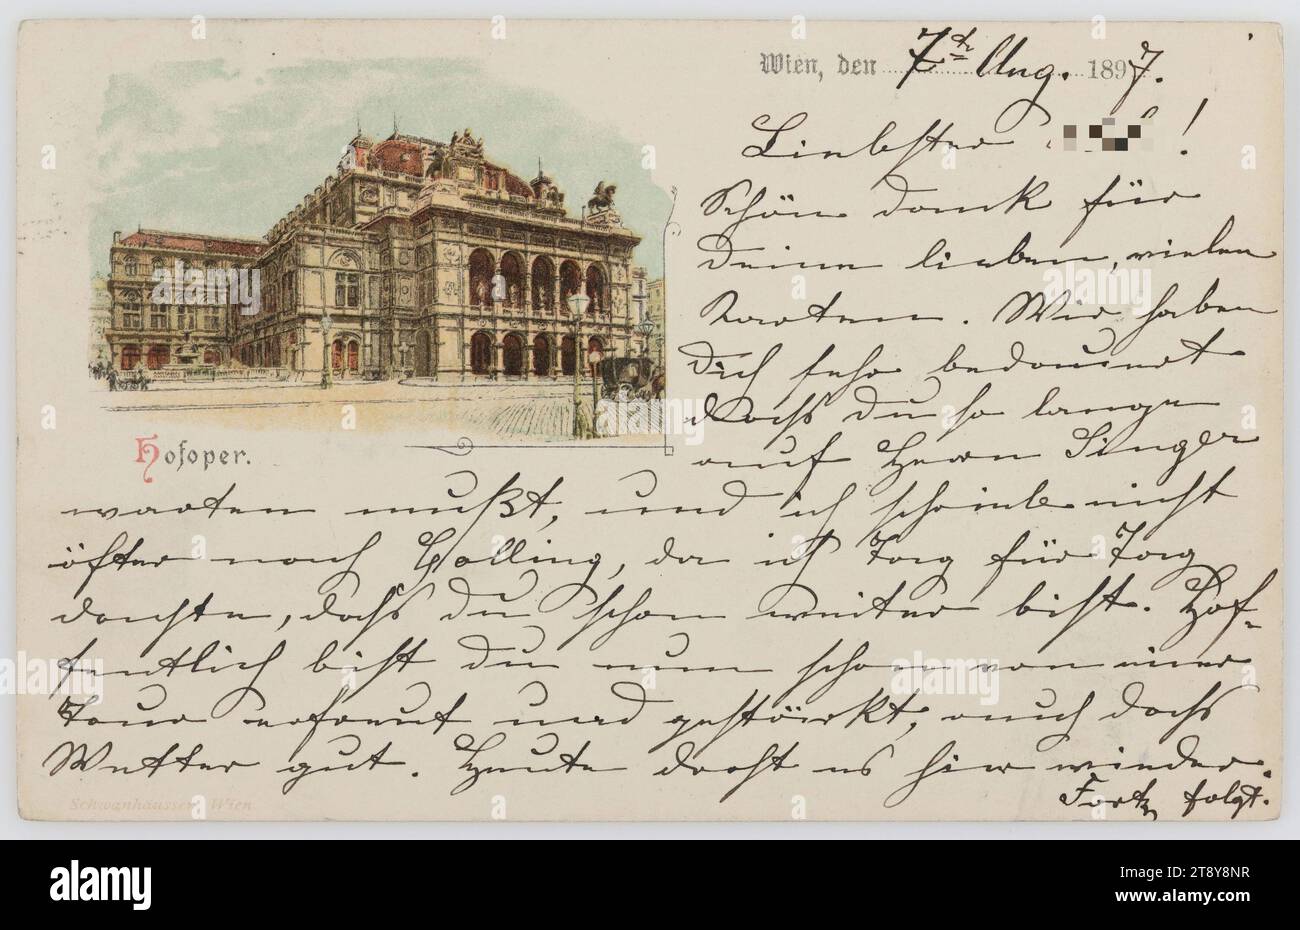 Wien, den 7ten Aug. 1897.
Liebster !
Schön dank für
deine lieben, vielen
Karten. Wir haben
dich sehr bedauert
dass du so lange
auf Herrn Singer
Hofoper.
warten mußt, und ich schreibe nicht
öfter nach Golling, da ich Tag für Tag
dachte, dass du schon weiter bist. Hof-
fentlich bist du nun schon von einer
Tour erfreut und gestärkt, auch das
Wetter gut. Heute droht es hier wieder.
Schwanhäusser, Wien
Forts. folgt.
alamy
Image ID: 2T8Y8NR
www.alamy.com